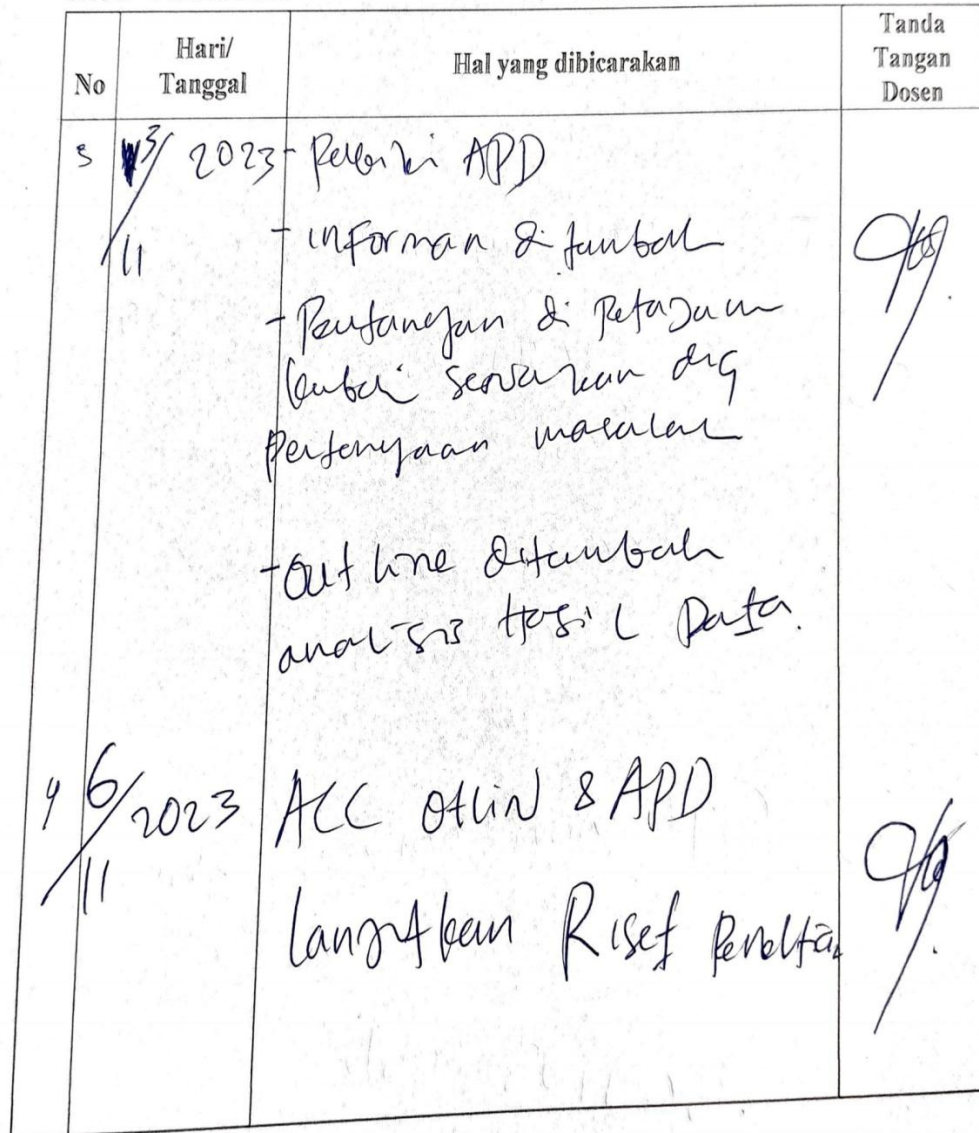 No
Hari/
Tanggal
Hal yang dibicarakan
Tanda
Tangan
Dosen
3 3/11 2023 - Perbaiki APD
- informan ditambah
- di
dng
Pertanyaan masalah
- Outline ditambah
analisis Hasil Data.
4 6/11 2023 ACC Otlin & APD
lanjutkan Riset Penelitian